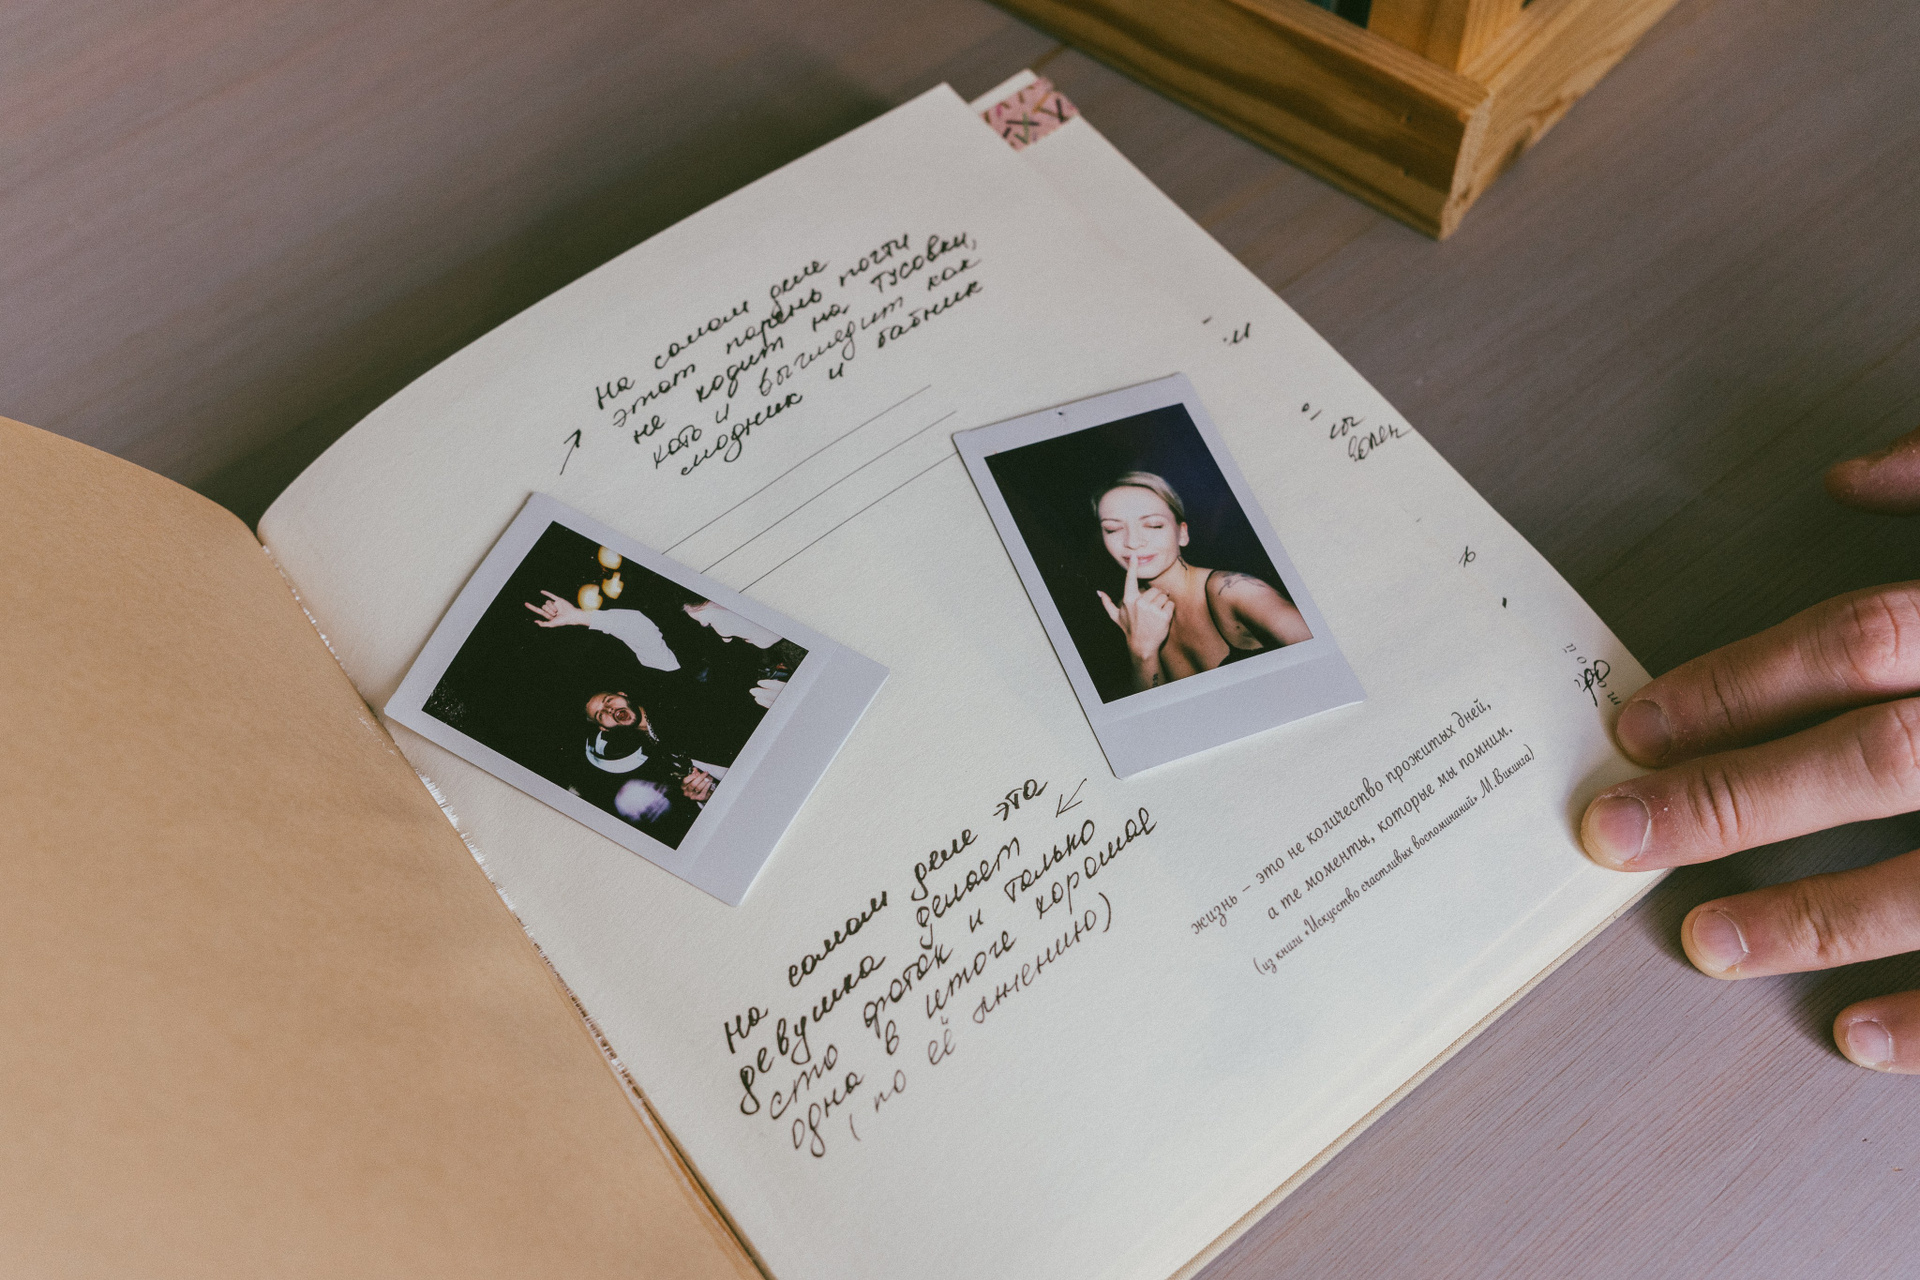 На самом деле
этот парень почти
не ходит на тусовки,
хоть и выглядит как
модник и бабник
На самом деле эта
девушка делает
сто фоток и только
одна в итоге хорошая
(по её мнению)
жизнь – это не количество прожитых дней,
а те моменты, которые мы помним.
(из книги «Искусство счастливых воспоминаний» М.Викинга)